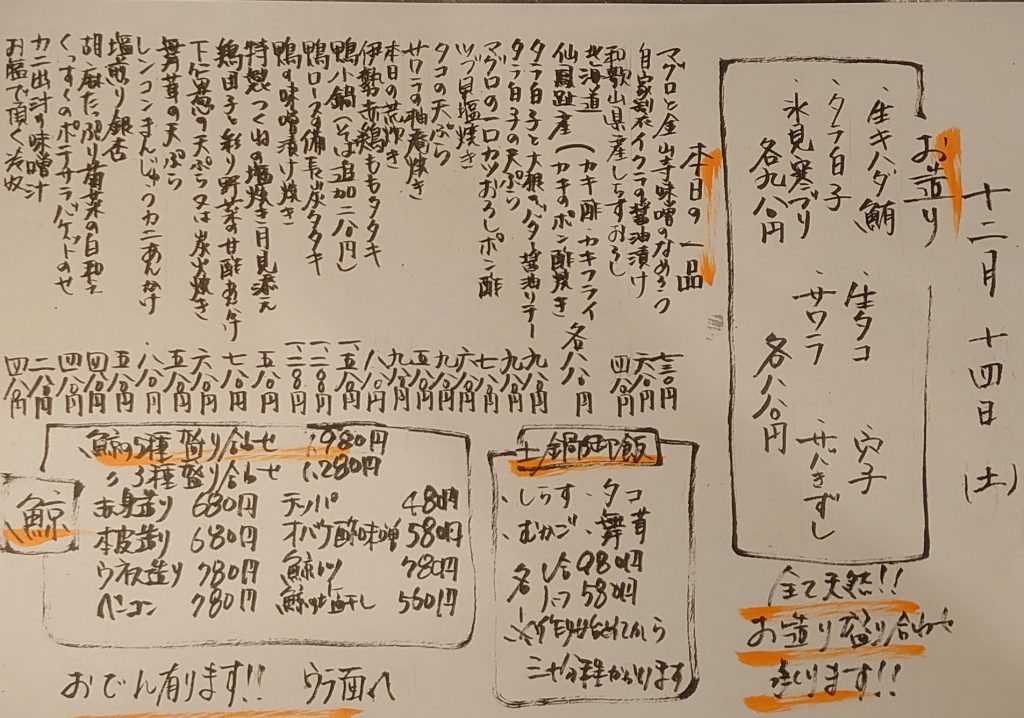 十二月 十四日 (土)
お造り
・生キハダ鮪 ・生タコ ・穴子
・タラ白子 ・サワラ ・サバきずし
・氷見寒ブリ
各九八〇円 各八八〇円
全て天然!!
お造り盛り合わせ
造ります!!
本日の一品
マグロと金山寺味噌のなめろう 七三〇円
自家製イクラの醤油漬け 六八〇円
和歌山県産しらすおろし 四八〇円
北海道 (カキ酢・カキフライ
仙鳳趾産 (カキのポン酢焼き 各八八〇円
タラ白子と大根のバター醤油ソテー 九八〇円
タラ白子の天ぷら 九八〇円
マグロの一口カツおろしポン酢 七八〇円
ツブ貝塩焼き 六八〇円
タコの天ぷら 九八〇円
サワラの柚庵焼き 五八〇円
本日の荒炊き 九八〇円
伊勢赤鶏もものタタキ 八八〇円
鴨小鍋(そば追加二八〇円) 一、五八〇円
鴨ロースの備長炭タタキ 一、二八〇円
鴨の味噌漬け焼き 一、二八〇円
特製つくねの塩焼き月見添え 五八〇円
鶏団子と彩り野菜の甘酢あんかけ 七八〇円
下仁田葱の天ぷら又は炭火焼き 六八〇円
舞茸の天ぷら 五八〇円
レンコンまんじゅうカニあんかけ 八八〇円
塩煎り銀杏 五八〇円
胡麻たっぷり菊菜の白和え 四八〇円
くっすくのポテサラバゲットのせ 四八〇円
カニ出汁の味噌汁 二八〇円
お塩で頂く 四八〇円
土鍋御飯
・しらす ・タコ
・むかご ・舞茸
各 1合 980円
1/2 580円
三十分程かかります
鯨
鯨の5種盛り合わせ 1,980円
〃 3種盛り合わせ 1,280円
赤身造り 680円 テッパ 480円
本皮造り 680円 オバケ酢味噌 580円
ウネス造り 780円 鯨カツ 780円
ベーコン 780円 鯨の塩干し 580円
おでん有ります!! ウラ面へ